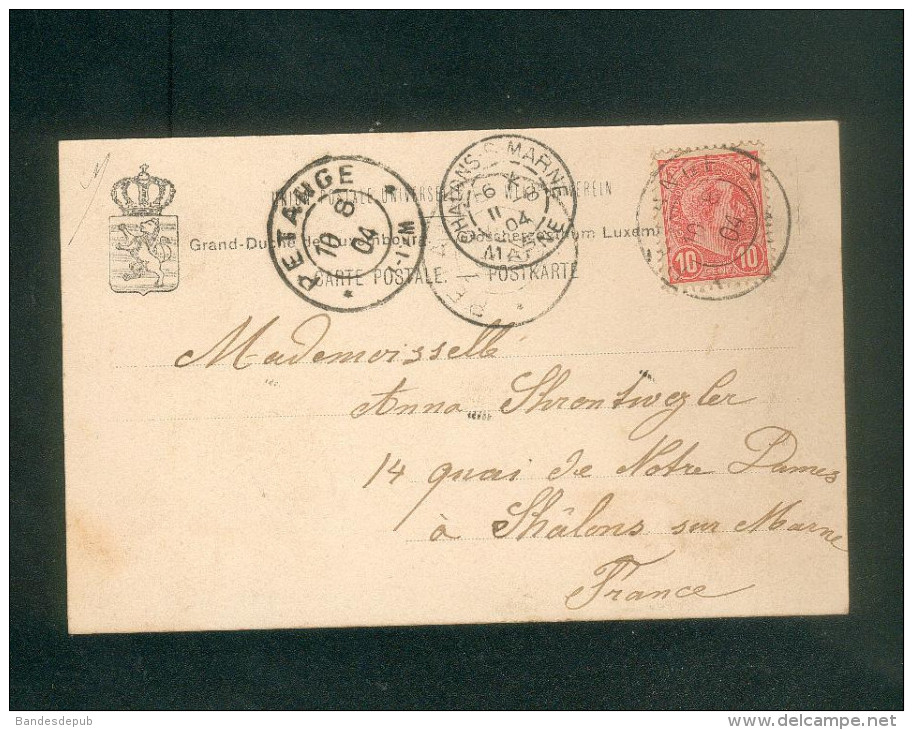 UNION POSTALE UNIVERSELLE WELTPOSTVEREIN
Grand-Duché de Luxembourg. Grossherzogtum Luxemburg
CARTE POSTALE. POSTKARTE
PETANGE
10 8
04
CHALONS-S-MARNE
MARNE
6
11
04
10 10
04
Mademoisselle
Anna Shrontwezler
14 quai de Notre Dames
à Shâlons sur Marne
France
Bandesdepub
www.delcampe.net